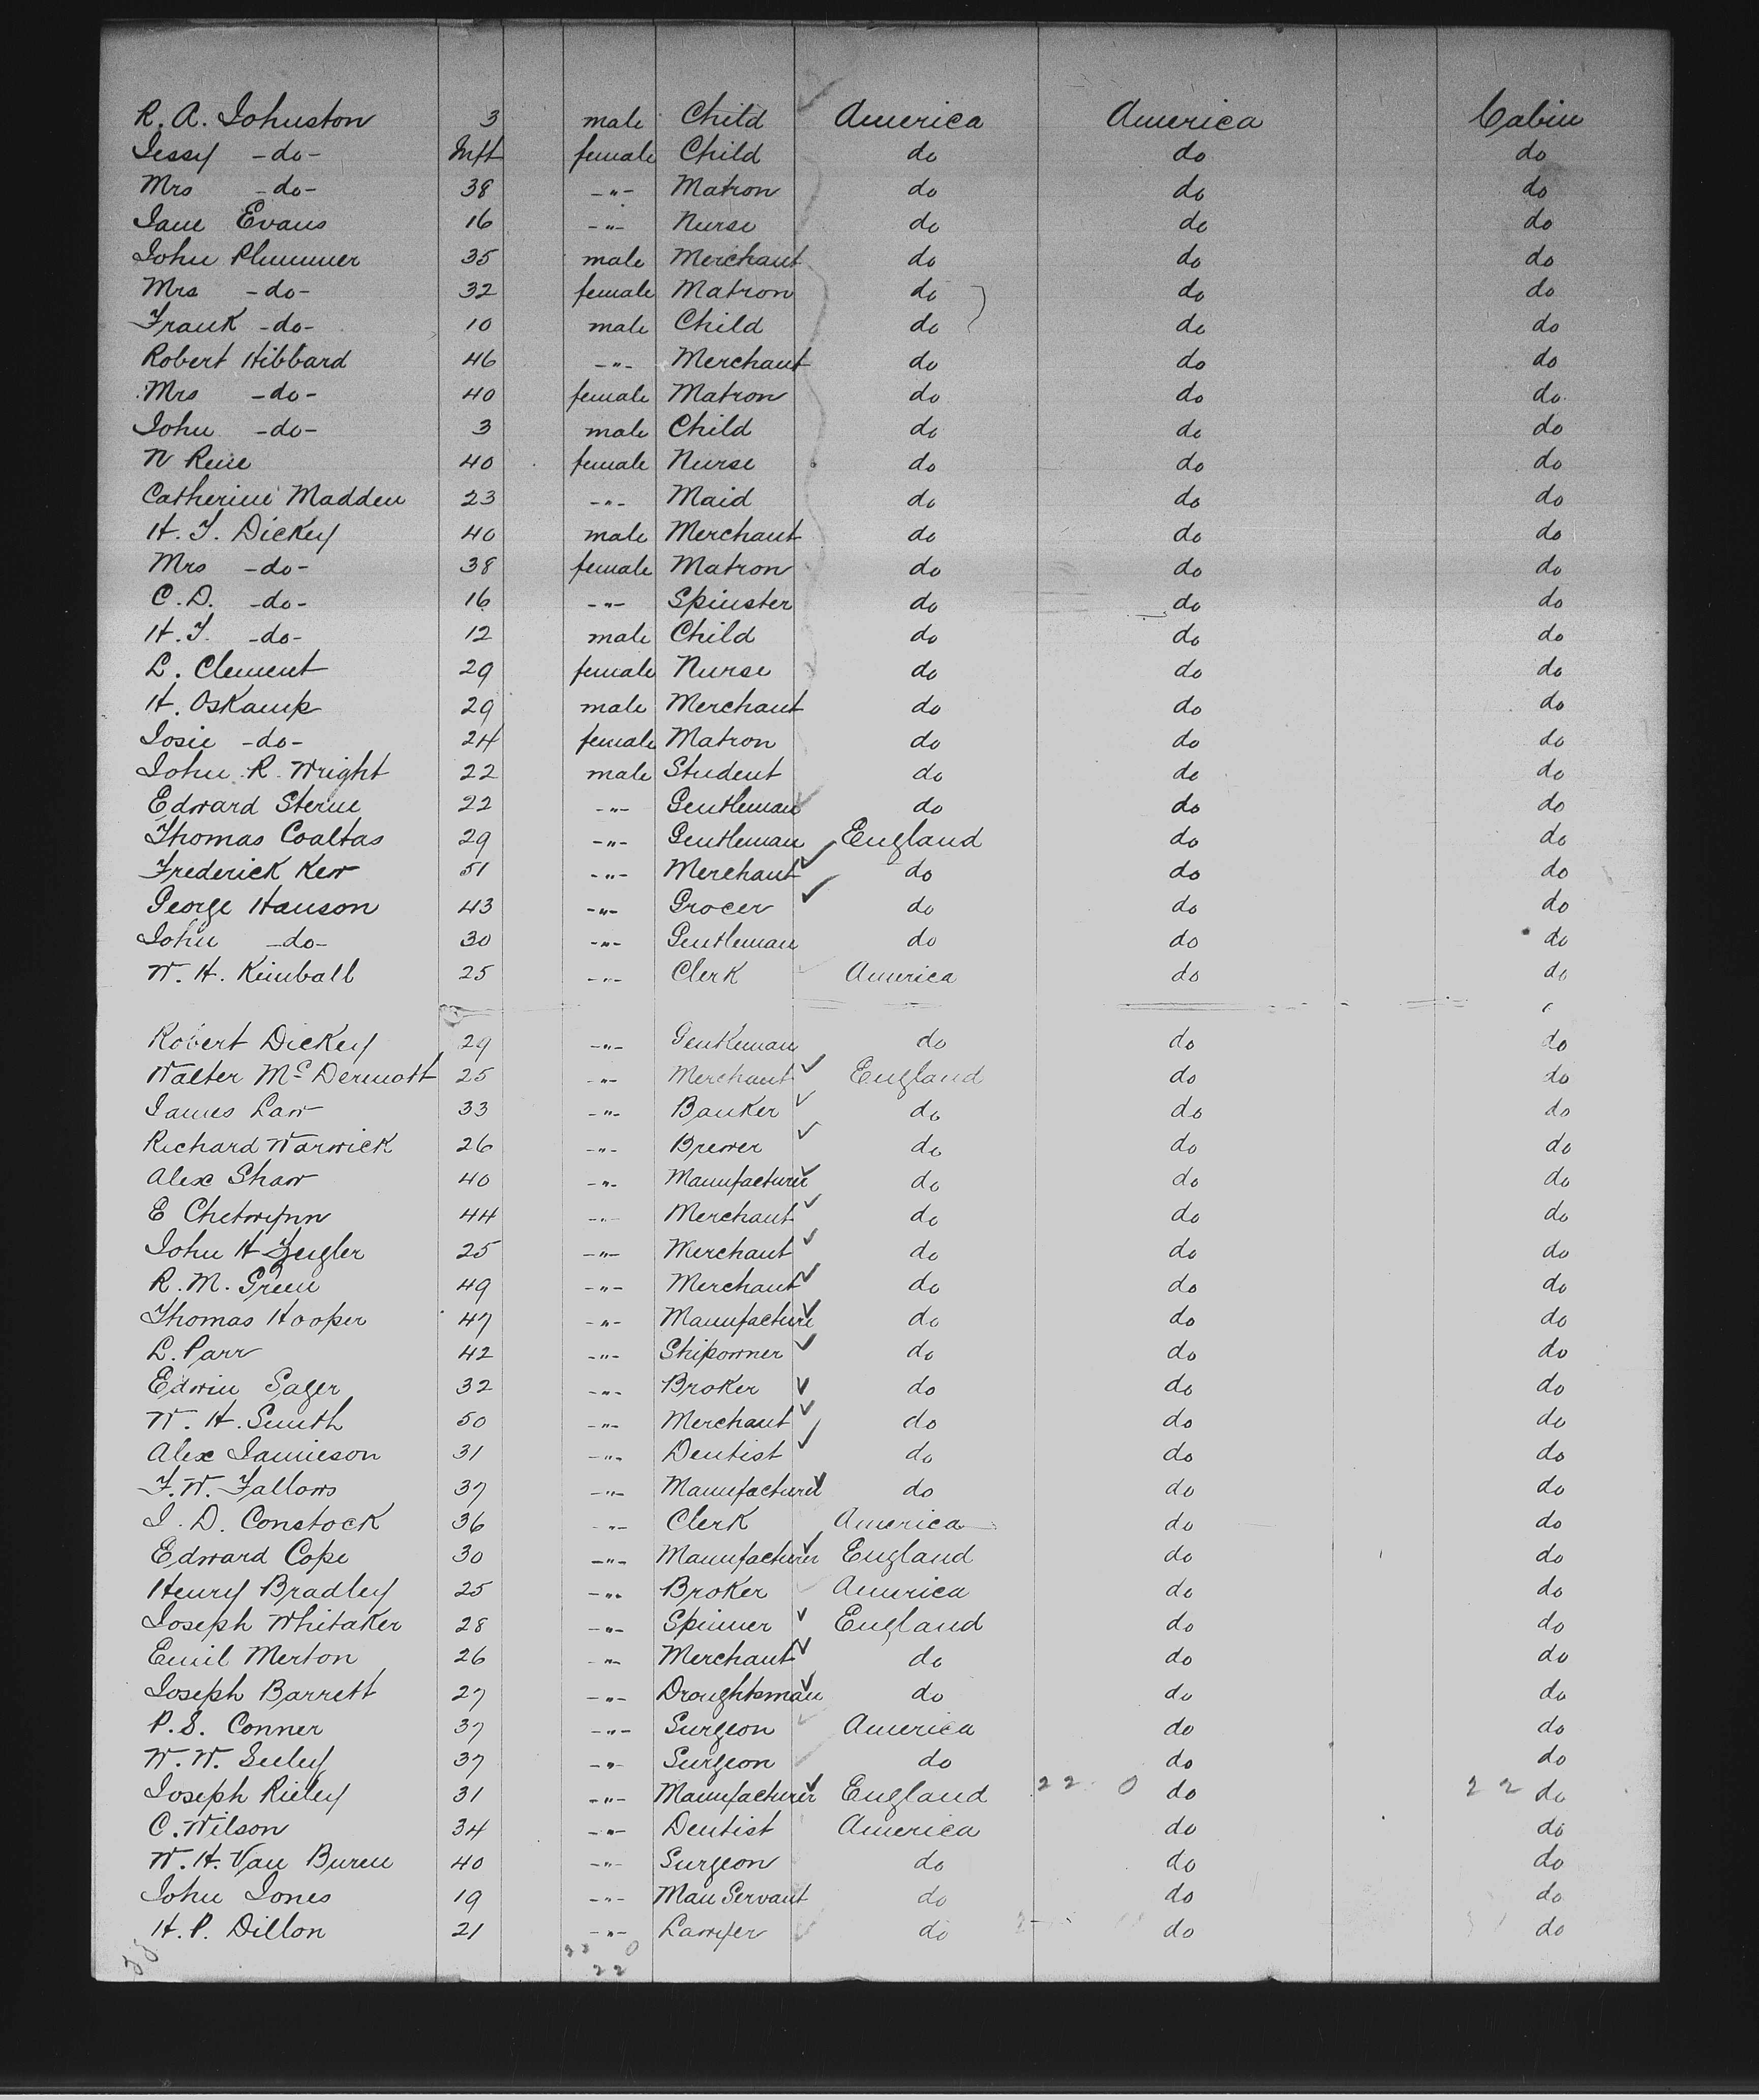 R. A. Johnston 3 male Child America America Cabin
Jessy -do- Inft female Child do do do
Mrs -do- 38 -"- Matron do do do
Jane Evans 16 -"- Nurse do do do
John Plummer 35 male Merchant do do do
Mrs -do- 32 female Matron do do do
Frank -do- 10 male Child do do do
Robert Hibbard 46 -"- Merchant do do do
Mrs -do- 40 female Matron do do do
John -do- 3 male Child do do do
N 40 female Nurse do do do
Catherine Madden 23 -"- Maid do do do
H. T. Dickey 40 male Merchant do do do
Mrs -do- 38 female Matron do do do
C. D. -do- 16 -"- Spinster do do do
H. T. -do- 12 male Child do do do
L. Clement 29 female Nurse do do do
H. Oskamp 29 male Merchant do do do
Josie -do- 24 female Matron do do do
John R. Wright 22 male Student do do do
Edward Sterne 22 -"- Gentleman do do do
Thomas Coaltas 29 -"- Gentleman England do do
Frederick Kew 51 -"- Merchant do do do
George Hanson 43 -"- Grocer do do do
John -do- 30 -"- Gentleman do do do
W. H. Kimball 25 -"- Clerk America do do
Robert Dickey 29 -"- Gentleman do do do
Walter McDermott 25 -"- Merchant England do do
James Law 33 -"- Banker do do do
Richard Warwick 26 -"- Brewer do do do
Alex Shaw 40 -"- Manufacturer do do do
E Chetwynn 44 -"- Merchant do do do
John H Zeigler 25 -"- Merchant do do do
R. M. Green 49 -"- Merchant do do do
Thomas Hooper 47 -"- Manufacture do do do
L. Parr 42 -"- Shipowner do do do
Edwin Sager 32 -"- Broker do do do
W. H. Smith 50 -"- Merchant do do do
Alex Jamieson 31 -"- Dentist do do do
F. W. Fallows 37 -"- Manufacturer do do do
J. D. Constock 36 -"- Clerk America do do
Edward Cope 30 -"- Manufacturer England do do
Henry Bradley 25 -"- Broker America do do
Joseph Whitaker 28 -"- Spinner England do do
Emil Merton 26 -"- Merchant do do do
Joseph Barrett 27 -"- Droughtsman do do do
P. S. Conner 37 -"- Surgeon America do do
W. W. Seeley 37 -"- Surgeon do do do
Joseph Rieley 31 -"- Manufacturer England 22 0 do 22 do
C. Wilson 34 -"- Dentist America do do
W. H. Van Buren 40 -"- Surgeon do do do
John Jones 19 -"- Man Servant do do do
H. P. Dillon 21 -"- Lawyer do do do
22